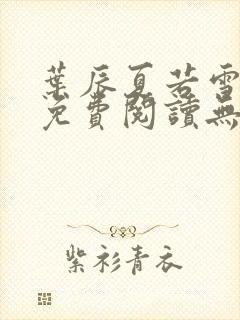 葉辰夏若雪
免費閱讀無
紫衫青衣